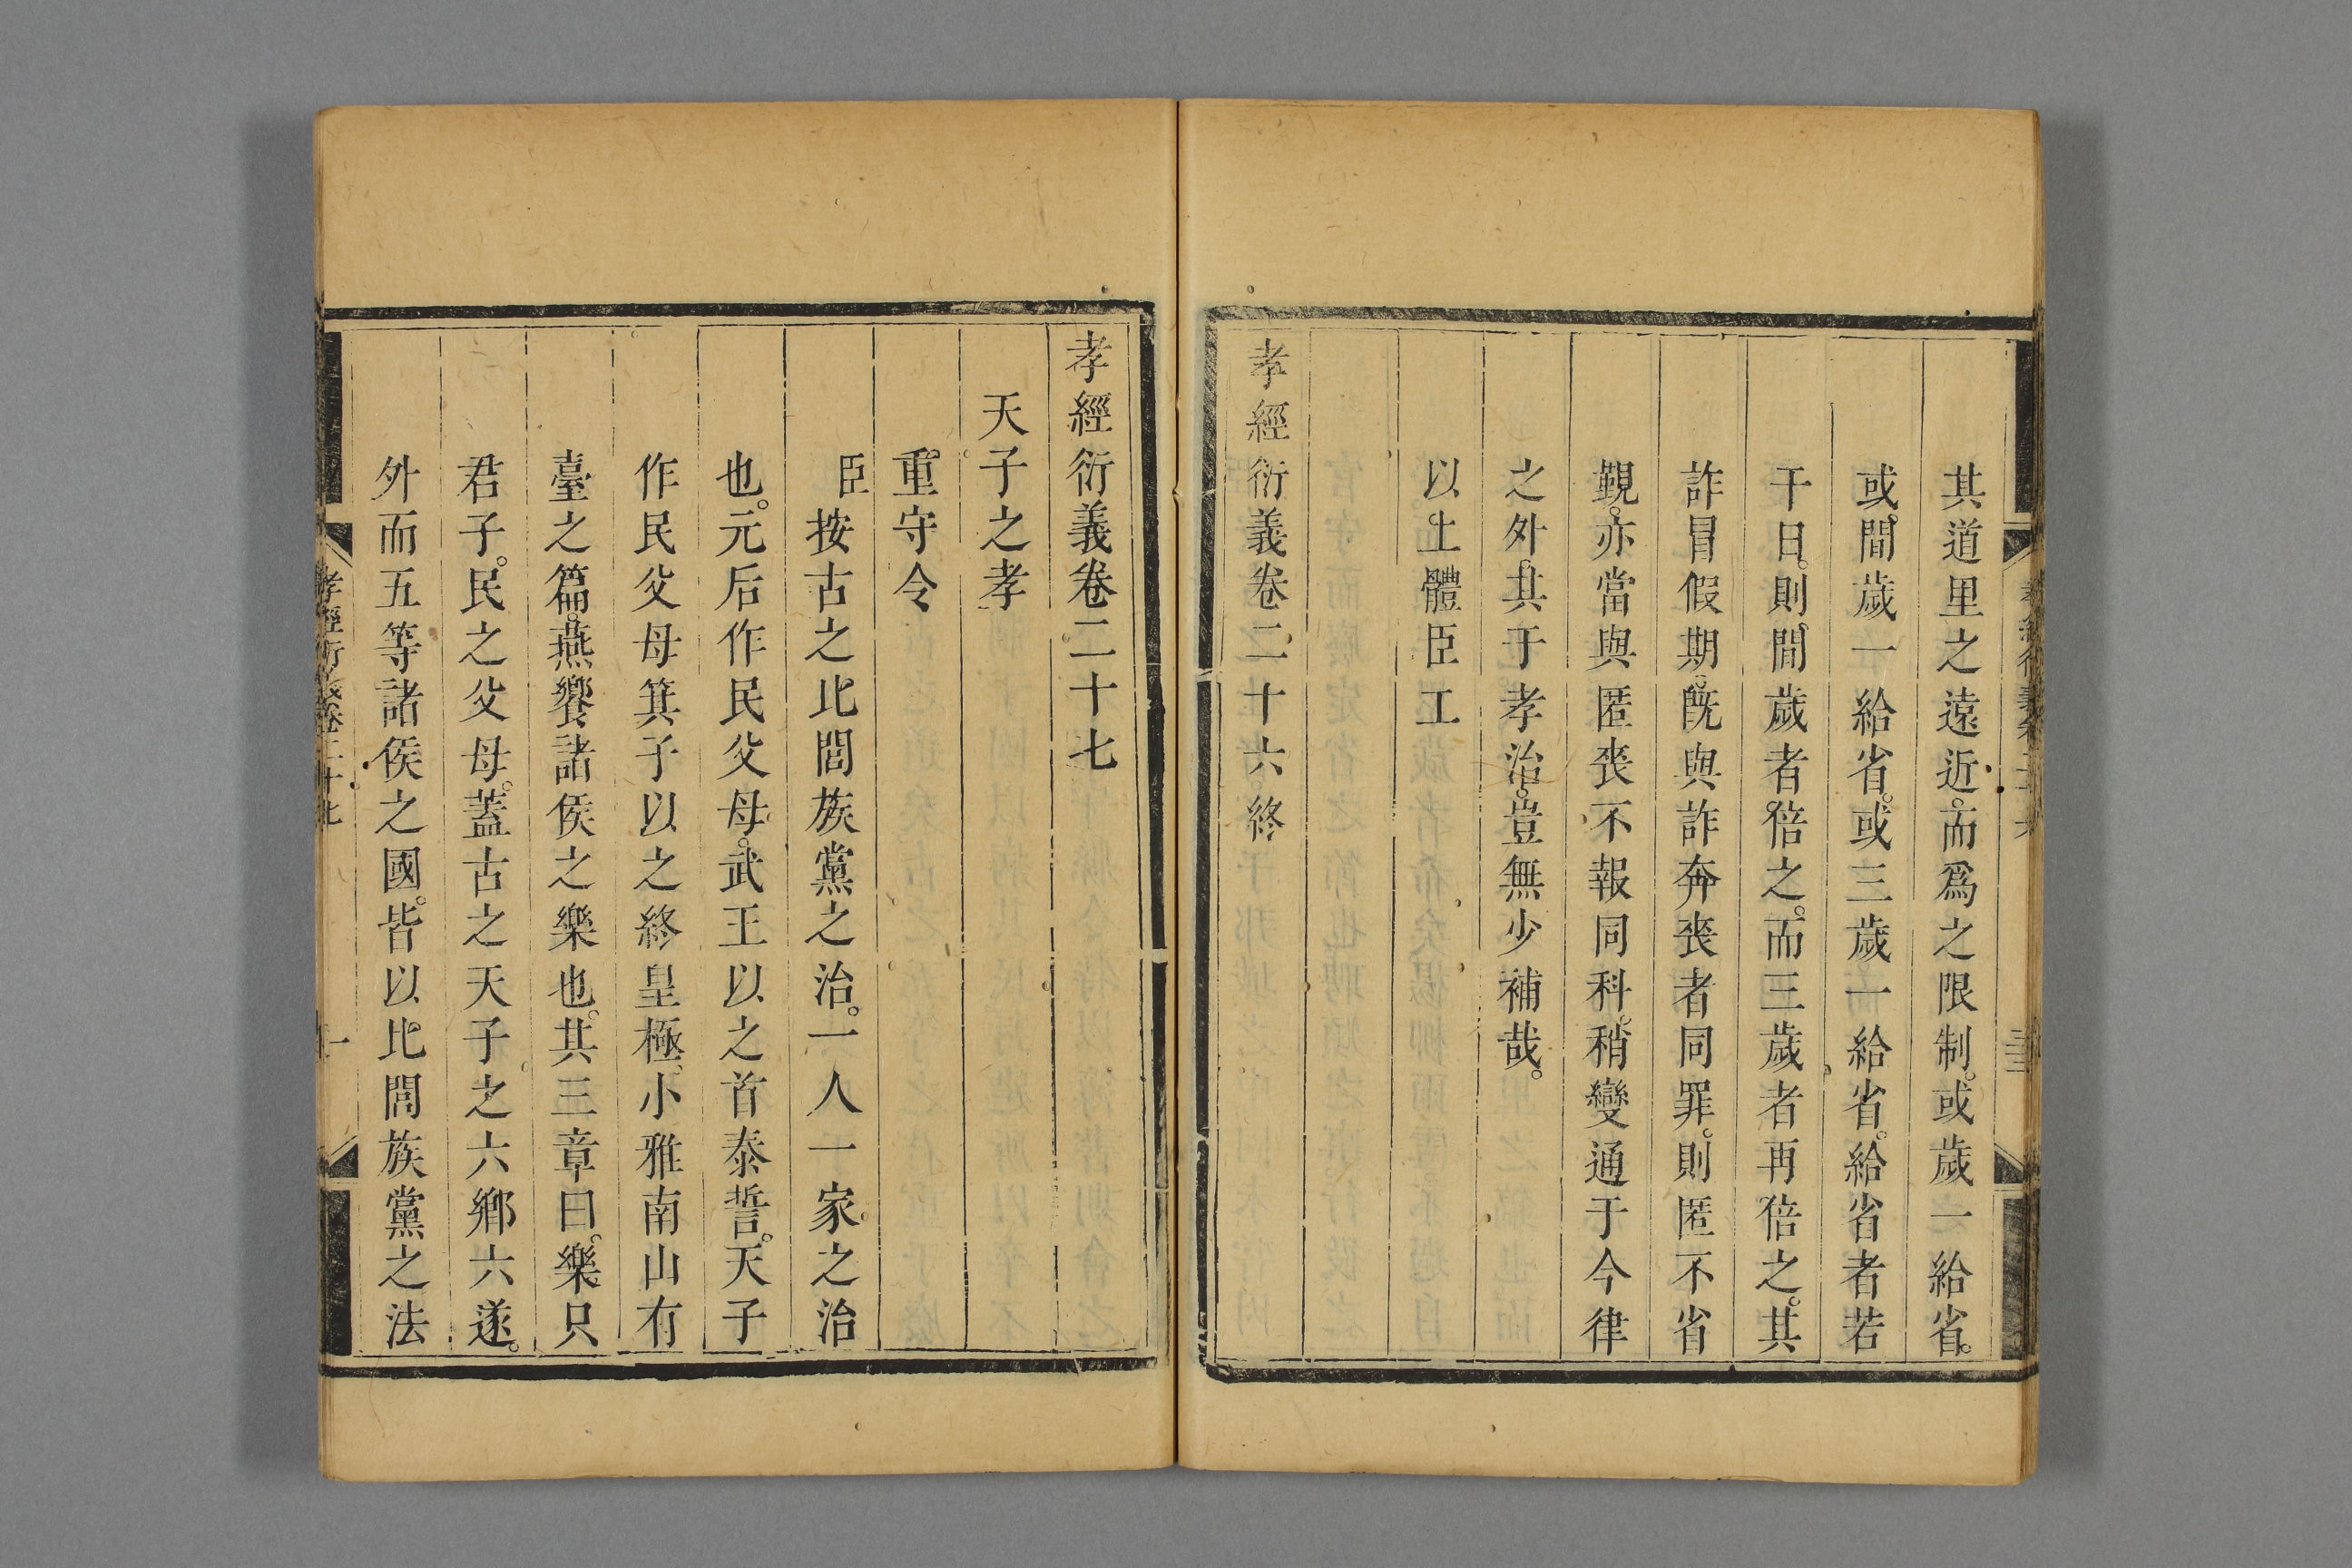 其道里之遠近。而爲之限制。或歲一給省。
或間歲一給省。或三歲一給省。給省者若
干日。則間歲者倍之。而三歲者再倍之。其
詐冒假期。旣與詐奔喪者同罪。則匿不省
覲。亦當與匿喪不報同科。稍變通于今律
之外。其于孝治。豈無少補哉。
以上體臣工
孝經衍義卷二十六終
孝經衍義卷二十七
天子之孝
重守令
臣按古之比閭族黨之治。一人一家之治
也。元后作民父母。武王以之首泰誓。天子
作民父母箕子以之終皇極。小雅南山有
臺之篇。燕饗諸侯之樂也。其三章曰。樂只
君子。民之父母。蓋古之天子之六鄉六遂。
外而五等諸侯之國。皆以比閭族黨之法
孝經衍義卷二十七
一